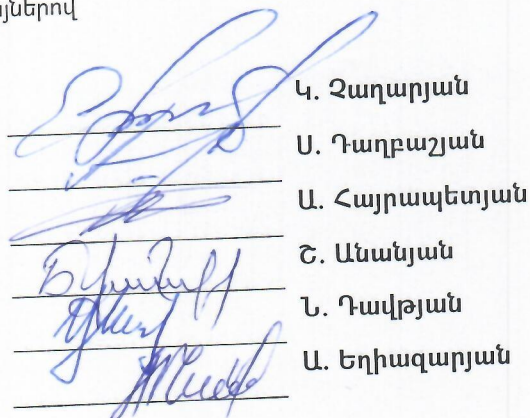 յներով
Կ. Չաղարյան
Ս. Դաղբաշյան
Ա. Հայրապետյան
Շ. Անանյան
Ն. Դավթյան
Ա. Եղիազարյան